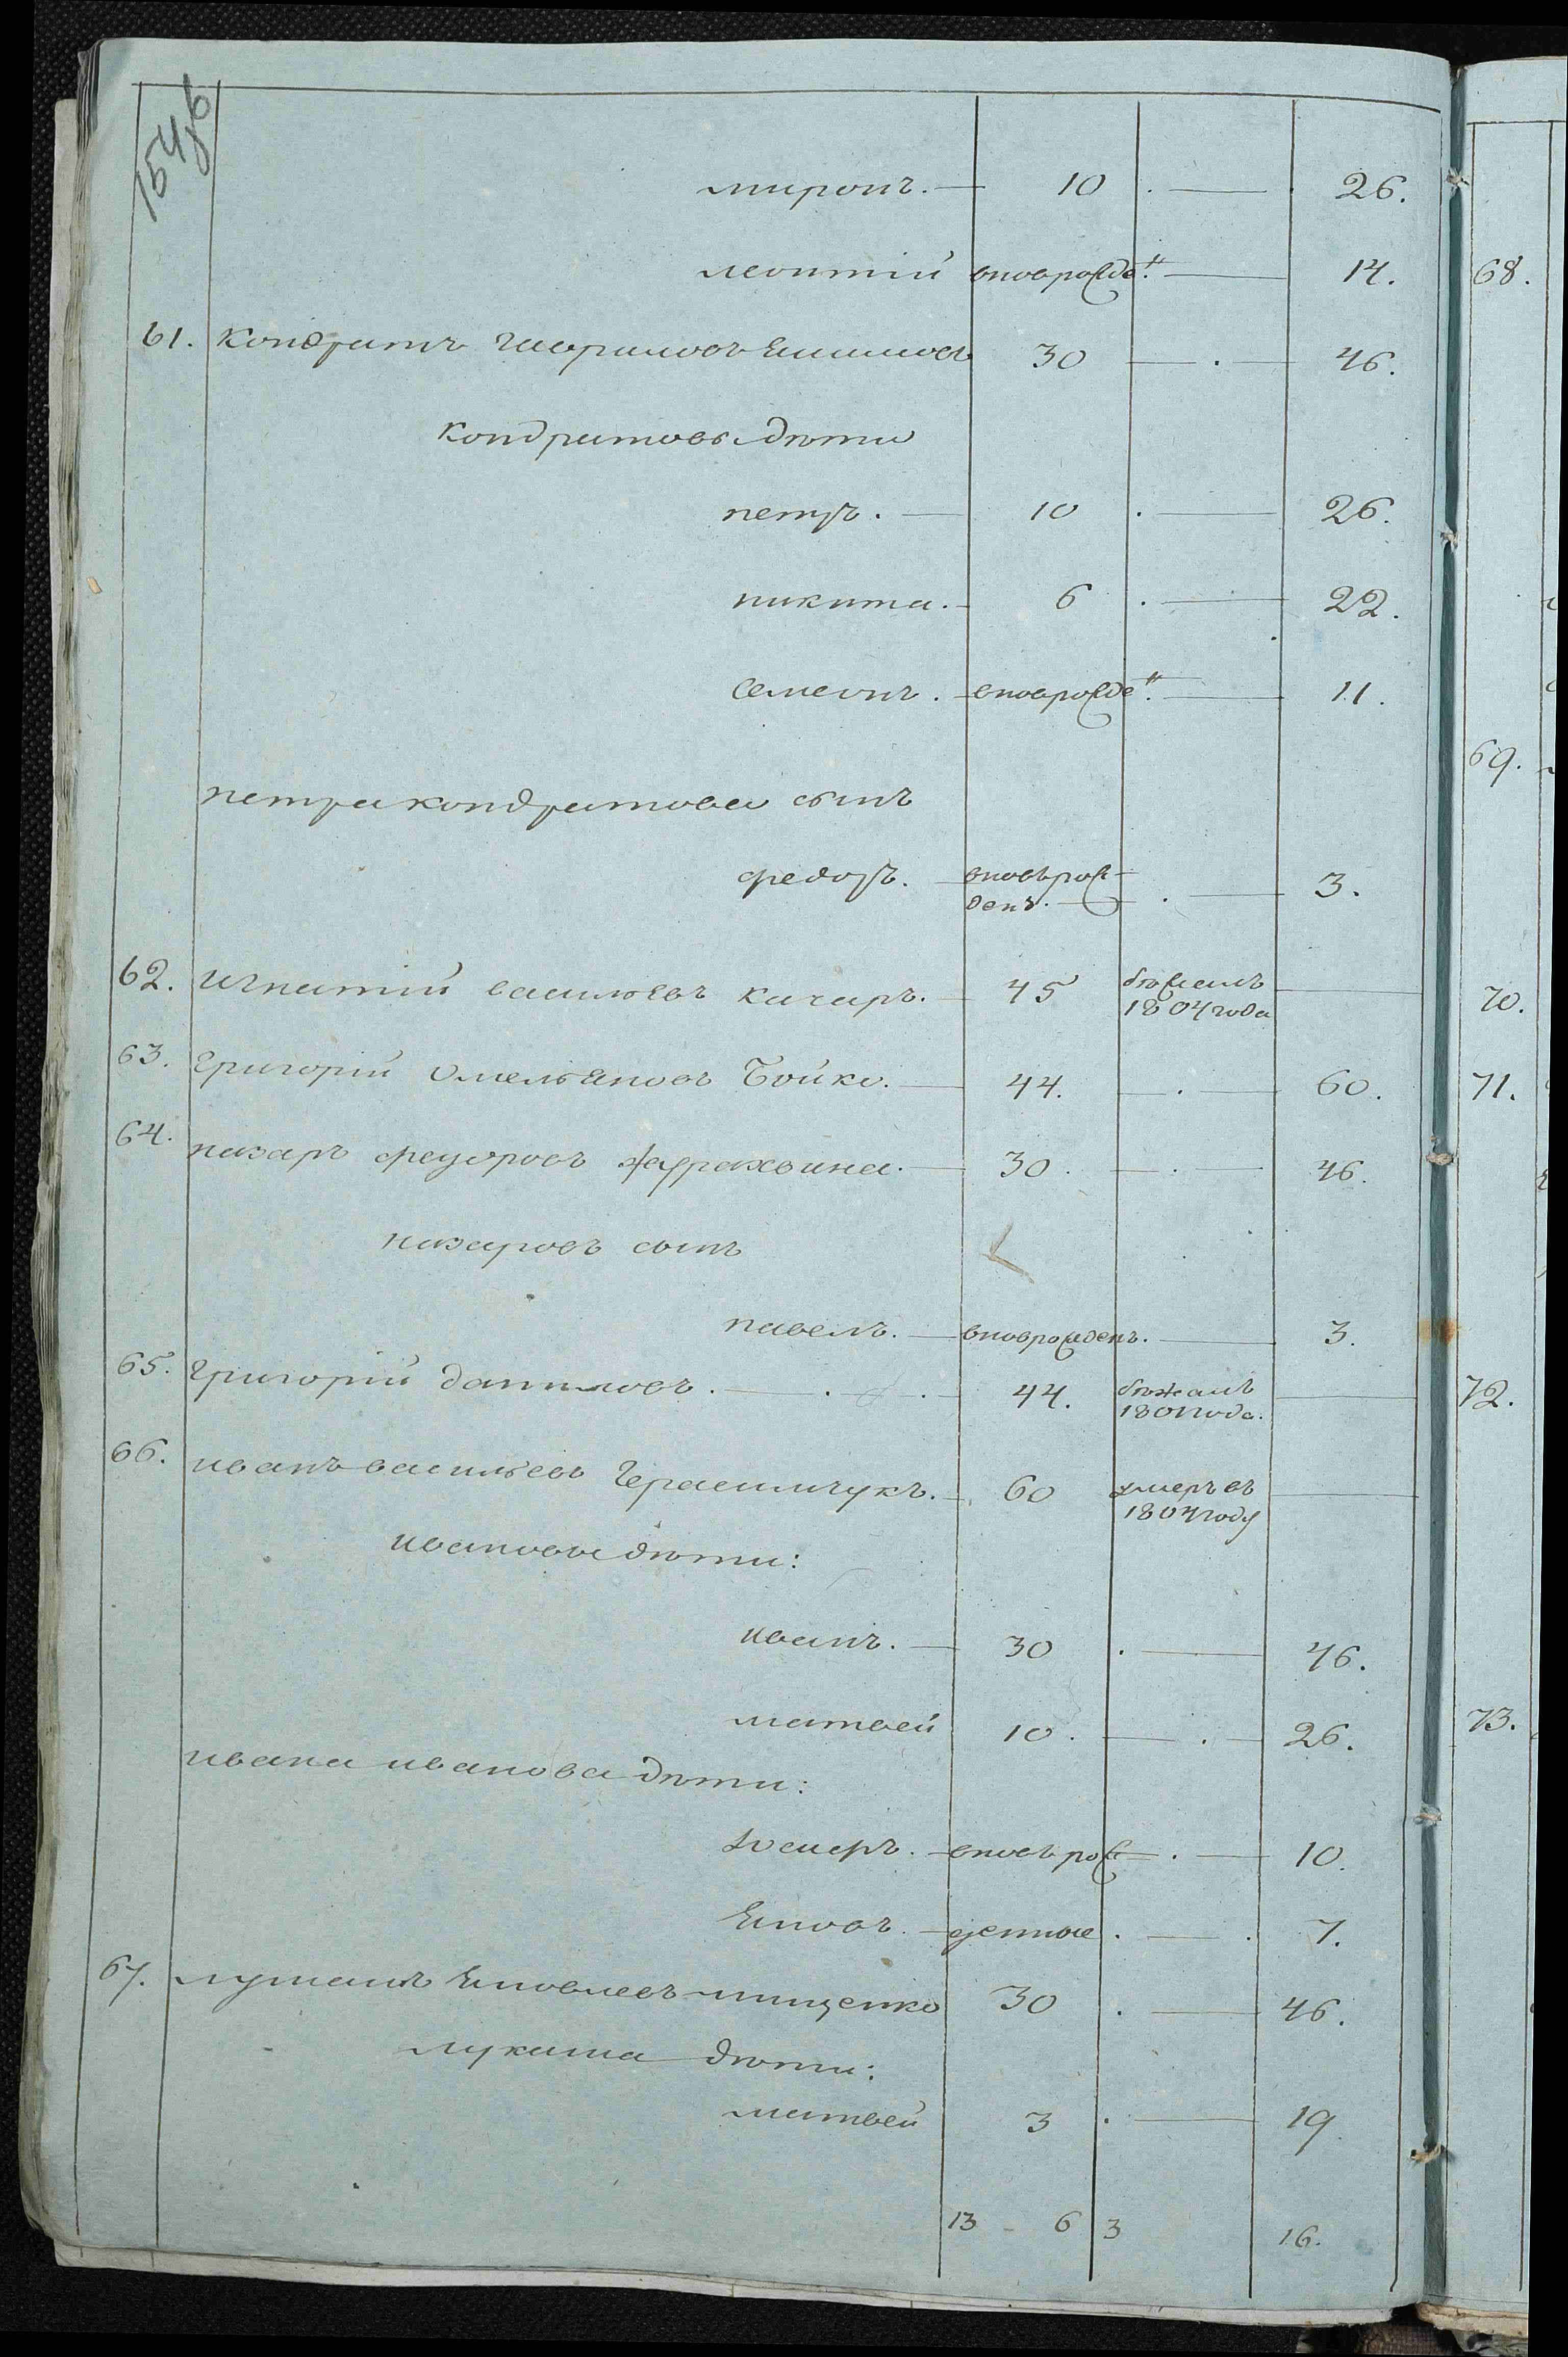 154об
миронъ. — 10 . — 26.
леонтий вновърожде" — 14.
61. Кондратъ гаврилов 30 — . — 46.
кондратовы дѣти
петръ. — 10 . — 26.
никита. — 6 . — 22.
Семенъ. — вновърожде" — 11.
петра кондратова сынъ
федоръ. — вновь рож-
денъ. — . — 3.
62. Игнатий васильевъ качаръ. — 45 бѣжалъ —
1804 года
63. Григорий Омельяновъ Бойко. — 44. — . — 60.
64. назаръ федоровъ — 30. — . — 46.
назаровъ сынъ
павелъ. — вноврожденъ. — 3.
65. Григорий даниловъ. — . — 44. бѣжалъ —
1801 года.
66. иванъ васильевъ Герасимчукъ. — 60 умеръ въ —
1804 году
ивановы дѣти:
иванъ. — 30 . — 46.
матвей 10. — . — 26.
ивана иванова дѣти:
— вновь рож — . — 10.
Яковъ. — денные . — . 7.
67. лукашъ Яковлевъ тищенко 30 . — 46.
лукаша дѣти:
матвей 3 . — 19.
13 - 6 3 16.
68.
69.
70.
71.
72.
73.